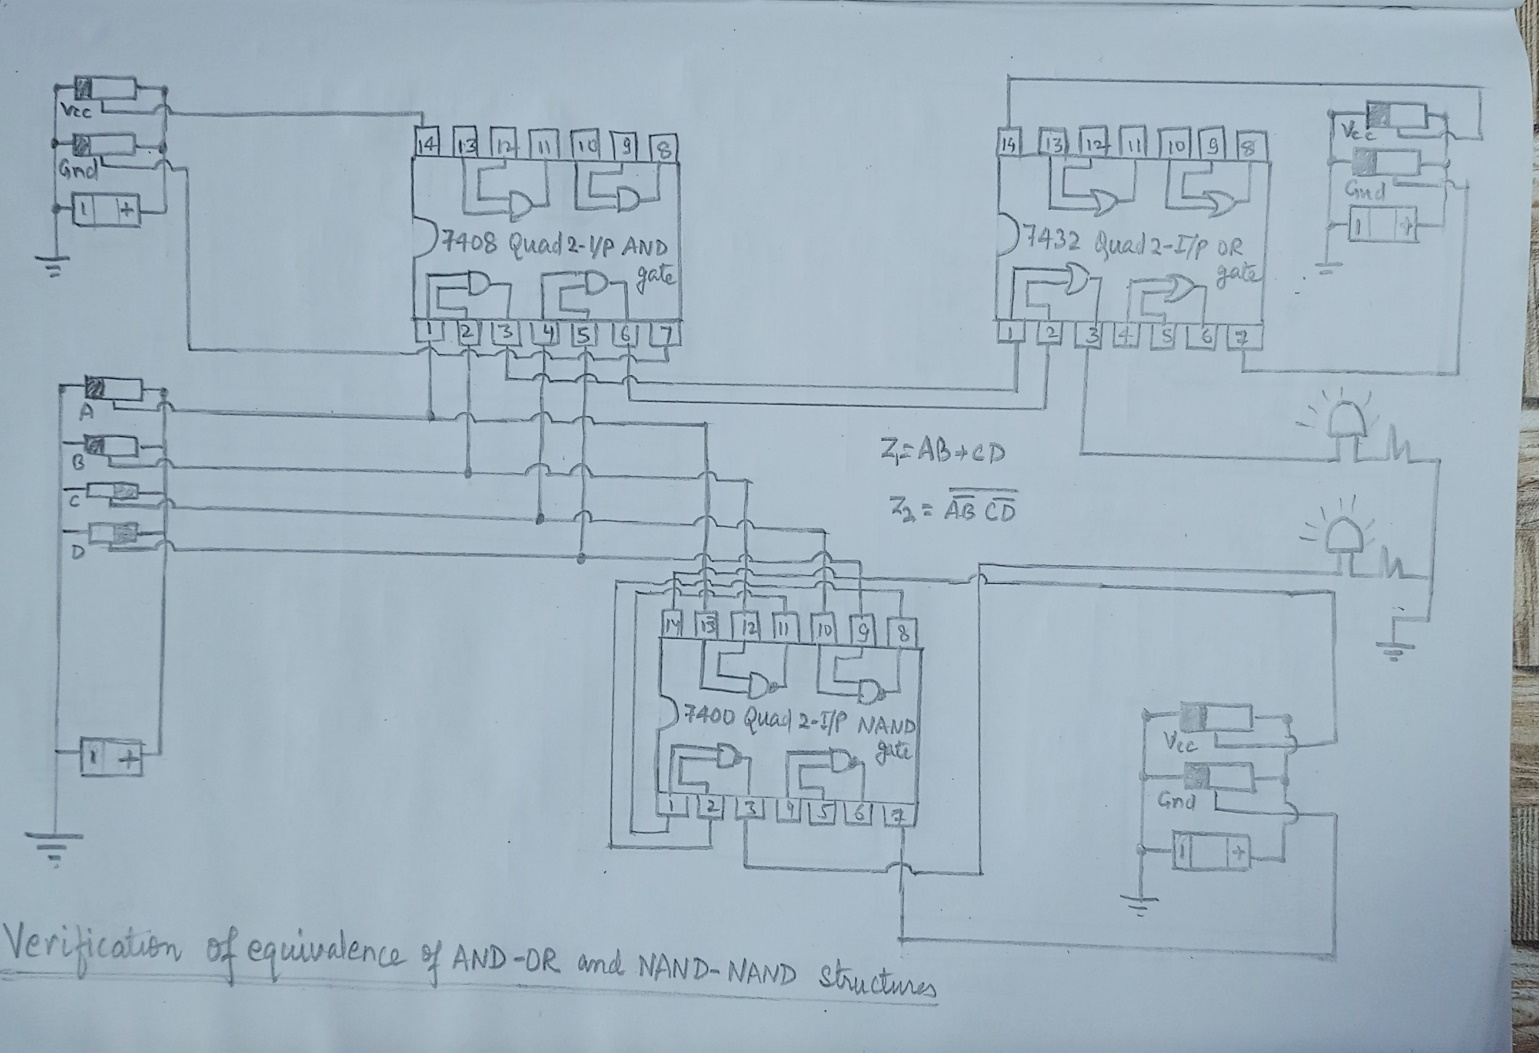 Vcc
Gnd
- +
14 13 12 11 10 9 8
7408 Quad 2-I/P AND
gate
1 2 3 4 5 6 7
14 13 12 11 10 9 8
7432 Quad 2-I/P OR
gate
1 2 3 4 5 6 7
Vcc
Gnd
- +
A
B
C
D
- +
Z₁ = AB + CD
Z₂ = \overline{\overline{AB} \overline{CD}}
14 13 12 11 10 9 8
7400 Quad 2-I/P NAND
gate
1 2 3 4 5 6 7
Vcc
Gnd
- +
Verification of equivalence of AND-OR and NAND-NAND structures